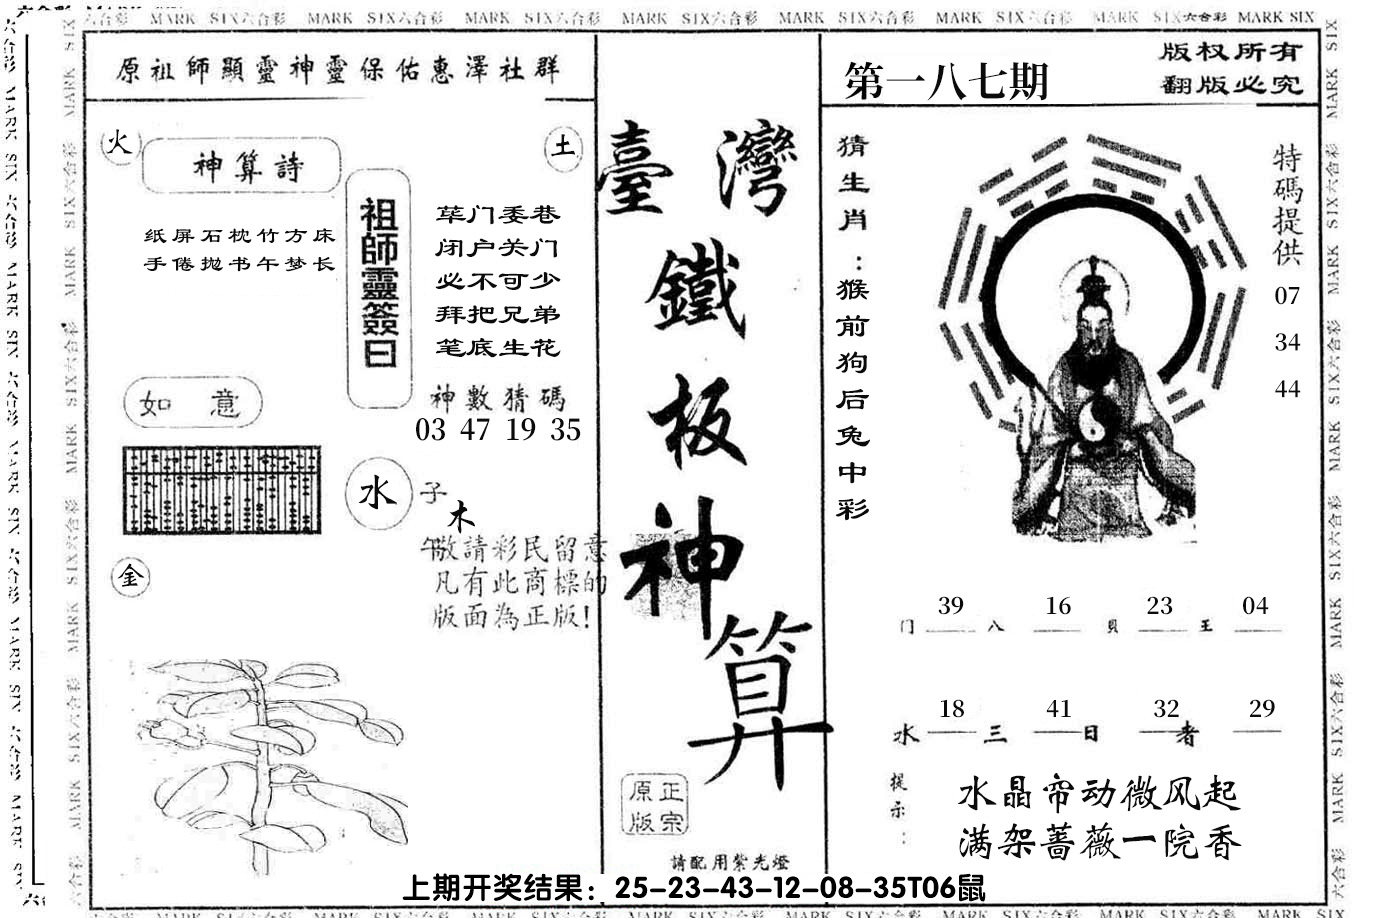 MARK SIX六合彩 MARK SIX六合彩 MARK SIX六合彩 MARK SIX六合彩 MARK SIX六合彩 MARK SIX六合彩 MARK SIX六合彩 MARK SIX六合彩 MARK SIX
原祖師顯靈神靈保佑惠澤社群
火
土
神算詩
纸屏石枕竹方床
手倦抛书午梦长
祖師靈簽曰
荜门委巷
闭户关门
必不可少
拜把兄弟
笔底生花
神數猜碼
03 47 19 35
如意
水
子
木
午
金
敬請彩民留意
凡有此商標的
版面為正版!
臺灣
鐵
板
神
算
原正
版宗
請配用紫光燈
第一八七期
版权所有
翻版必究
猜生肖:猴前狗后兔中彩
特碼提供
07
34
44
39 16 23 04
门 八 貝 王
18 41 32 29
水 三 日 者
提示:
水晶帘动微风起
满架蔷薇一院香
上期开奖结果：25-23-43-12-08-35T06鼠